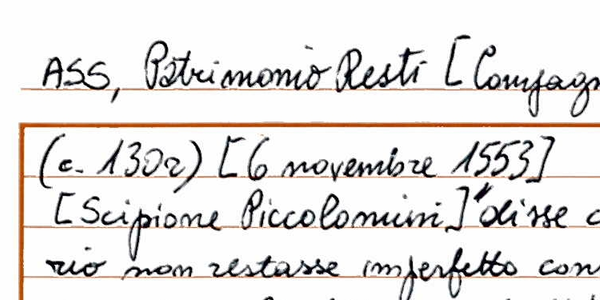 ASS, Patrimonio Resti [Compagn
(c. 130r) [6 novembre 1553]
[Scipione Piccolomini] "disse c
rio non restasse imperfetto con